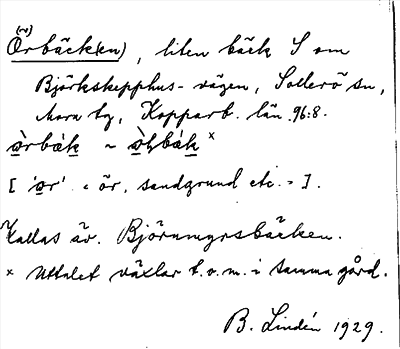 (~)
Örbäck(en), liten bäck S om
Björkskepphus-vägen, Sollerö sn,
Mora tg, Kopparb. län. 96:8.
ò̱rbák̠ ~ ò̱ꞕbák̠ ×
[ 'ör' "ör, sandgrund etc." ].
Kallas äv. Björnmyrsbäcken.
× Uttalet växlar t.o.m. i samma gård.
B. Lindén 1929.